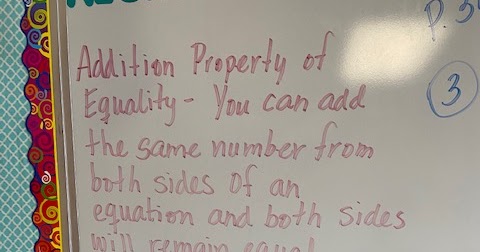 P. 3
Addition Property of
Equality - You can add
3
the same number from
both sides of an
equation and both sides
will remain equal